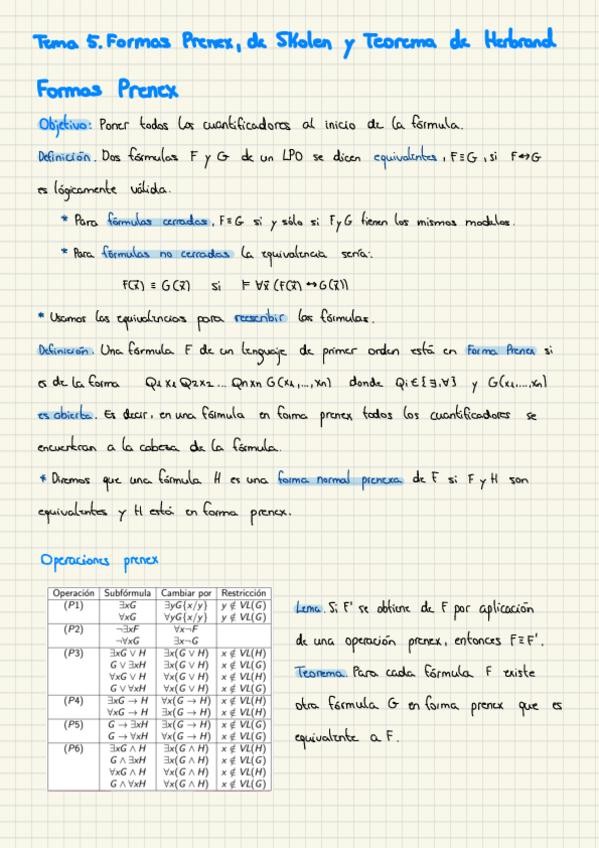 Tema 5. Formas Prenex, de Skolen y Teorema de Herbrand
Formas Prenex
Objetivo: Poner todos los cuantificadores al inicio de la fórmula.
Definición. Dos fórmulas F y G de un LPO se dicen equivalentes, F≡G, si F↔G
es lógicamente válida.
* Para fórmulas cerradas, F≡G si y sólo si F y G tienen los mismos modelos.
* Para fórmulas no cerradas la equivalencia sería:
F(x⃗) ≡ G(x⃗) si ⊨ ∀x⃗ (F(x⃗) ↔ G(x⃗))
* Usamos las equivalencias para reescribir las fórmulas.
Definición. Una fórmula F de un lenguaje de primer orden está en Forma Prenex si
es de la forma Q₁x₁Q₂x₂...Qnxn G(x₁,...,xn) donde Qi∈{∃,∀} y G(x₁,...,xn)
es abierta. Es decir, en una fórmula en forma prenex todos los cuantificadores se
encuentran a la cabeza de la fórmula.
* Diremos que una fórmula H es una forma normal prenexa de F si F y H son
equivalentes y H está en forma prenex.
Operaciones prenex
Operación Subfórmula Cambiar por Restricción
(P1) ∃xG ∃yG{x/y} y ∉ VL(G)
∀xG ∀yG{x/y} y ∉ VL(G)
(P2) ¬∃xF ∀x¬F
¬∀xG ∃x¬G
(P3) ∃xG ∨ H ∃x(G ∨ H) x ∉ VL(H)
G ∨ ∃xH ∃x(G ∨ H) x ∉ VL(G)
∀xG ∨ H ∀x(G ∨ H) x ∉ VL(H)
G ∨ ∀xH ∀x(G ∨ H) x ∉ VL(G)
(P4) ∃xG → H ∀x(G → H) x ∉ VL(H)
∀xG → H ∃x(G → H) x ∉ VL(H)
(P5) G → ∃xH ∃x(G → H) x ∉ VL(G)
G → ∀xH ∀x(G → H) x ∉ VL(G)
(P6) ∃xG ∧ H ∃x(G ∧ H) x ∉ VL(H)
G ∧ ∃xH ∃x(G ∧ H) x ∉ VL(G)
∀xG ∧ H ∀x(G ∧ H) x ∉ VL(H)
G ∧ ∀xH ∀x(G ∧ H) x ∉ VL(G)
Lema. Si F' se obtiene de F por aplicación
de una operación prenex, entonces F≡F'.
Teorema. Para cada fórmula F existe
otra fórmula G en forma prenex que es
equivalente a F.